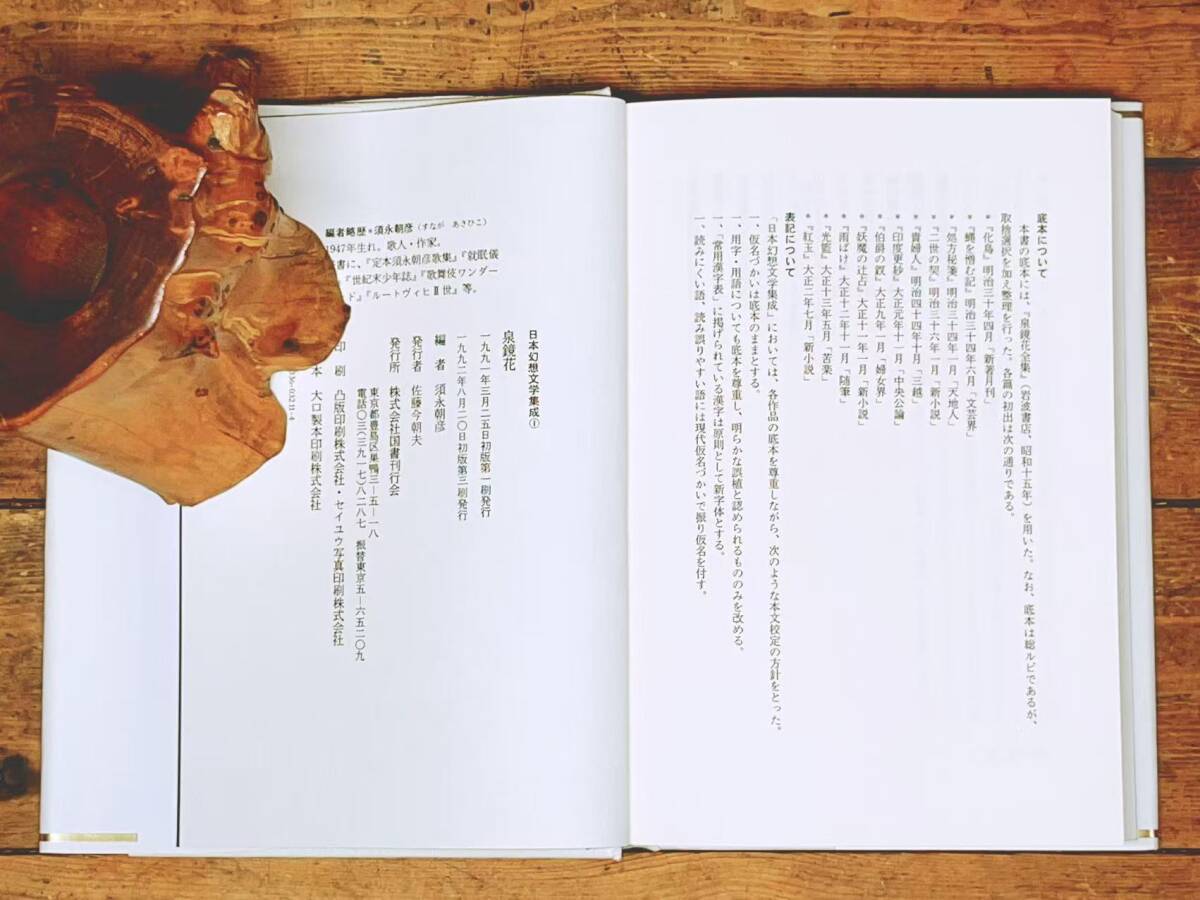 底本について
本書の底本には、『泉鏡花全集』(岩波書店、昭和十五年)を用いた。なお、底本は総ルビであるが、
取捨選択を加え整理を行った。各篇の初出は次の通りである。
＊『化鳥』明治三十年四月「新著月刊」
＊『蠅を憎む記』明治三十四年六月「文芸界」
＊『処方秘箋』明治三十四年一月「天地人」
＊『二世の契』明治三十六年一月「新小説」
＊『貴婦人』明治四十四年十月「三越」
＊『印度更紗』大正元年十一月「中央公論」
＊『伯爵の釵』大正九年一月「婦女界」
＊『妖魔の辻占』大正十一年一月「新小説」
＊『雨ばけ』大正十二年十一月「随筆」
＊『光籃』大正十三年五月「苦楽」
＊『紅玉』大正二年七月「新小説」
表記について
「日本幻想文学集成」においては、各作品の底本を尊重しながら、次のような本文校定の方針をとった。
一、仮名づかいは底本のままとする。
一、用字・用語についても底本を尊重し、明らかな誤植と認められるもののみを改める。
一、「常用漢字表」に掲げられている漢字は原則として新字体とする。
一、読みにくい語、読み誤りやすい語には現代仮名づかいで振り仮名を付す。
編者略歴＊須永朝彦(すなが あさひこ)
1947年生れ。歌人・作家。
書に、『定本須永朝彦歌集』『就眠儀
『世紀末少年誌』『歌舞伎ワンダー
ド』『ルートヴィヒⅡ世』等。
日本幻想文学集成①
泉鏡花
一九九一年三月二五日初版第一刷発行
一九九二年八月二〇日初版第三刷発行
編 者 須永朝彦
発行者 佐藤今朝夫
発行所 株式会社国書刊行会
東京都豊島区巣鴨三―五―一八
電話〇三(三九一七)八二八七 振替東京五―六五二〇九
印 刷 凸版印刷株式会社・セイユウ写真印刷株式会社
本 大口製本印刷株式会社
36-03211-4